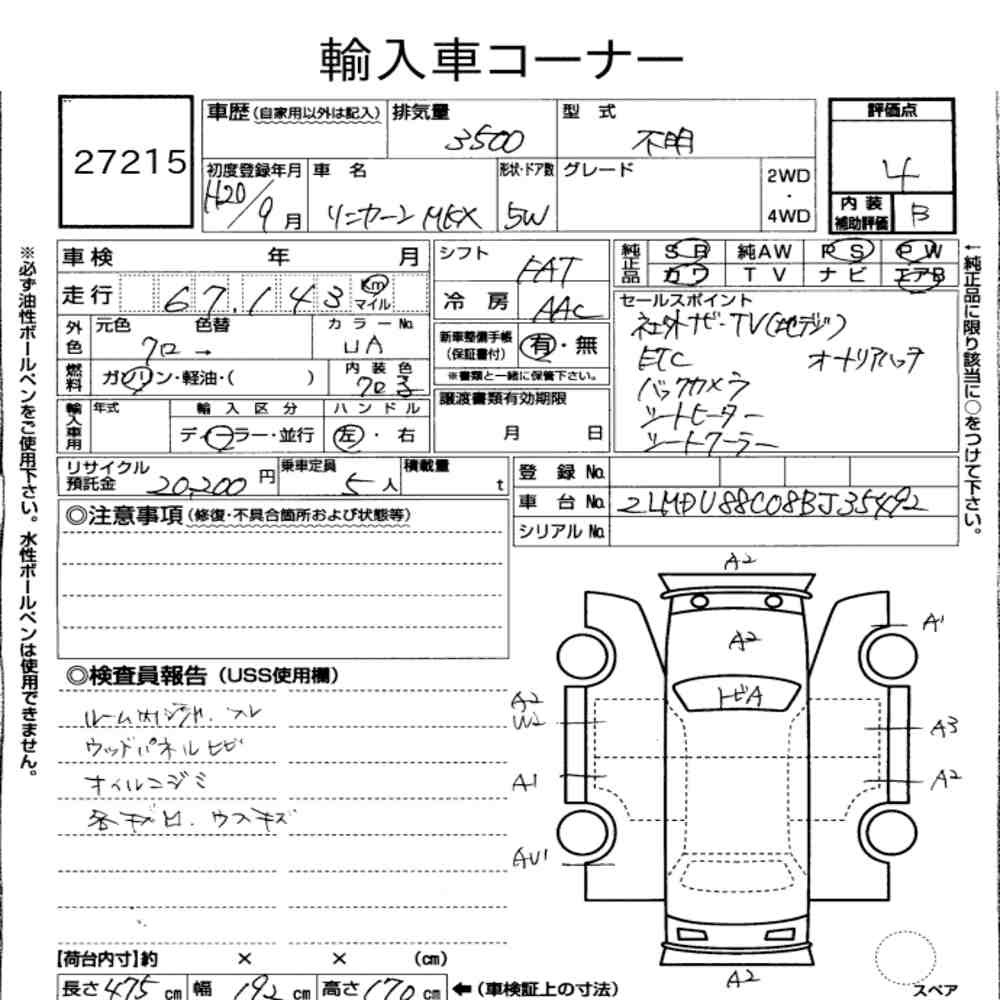 輸入車コーナー
27215
車歴(自家用以外は記入)
排気量
3500
型 式
不明
評価点
4
初度登録年月
H20/9月
車 名
リンカーン MKX
形状・ドア数
5W
グレード
2WD
・
4WD
内装
補助評価
B
車検 年 月
走行 67,143 Km マイル
シフト
FAT
冷房
AAC
純正品
SR 純AW PS PW
カワ TV ナビ エアB
外色
元色 色替
クロ →
カラーNo.
UA
燃料
ガソリン・軽油・( )
内装色
クロ
新車整備手帳
(保証書付)
有・無
※書類と一緒に保管下さい。
セールスポイント
社外ナビ・TV(地デジ)
ETC オートリアハッチ
バックカメラ
シートヒーター
シートクーラー
輸入車用
年式
輸入区分
ディーラー・並行
ハンドル
左・右
譲渡書類有効期限
月 日
リサイクル
預託金
20,200円
乗車定員
5人
積載量
t
登録No.
車台No. 2LMDU88C08BJ35492
シリアルNo.
◎注意事項(修復・不具合箇所および状態等)
◎検査員報告(USS使用欄)
ウッドパネルヒビ
オイルニジミ
ウスキズ
A2
A2
トビA
A1
A2
W2
A3
A1
A2
AU1
A2
スペア
【荷台内寸】約 × × (cm)
長さ475cm 幅192cm 高さ170cm
←(車検証上の寸法)
※必ず油性ボールペンをご使用下さい。水性ボールペンは使用できません。
←純正品に限り該当に○をつけて下さい。